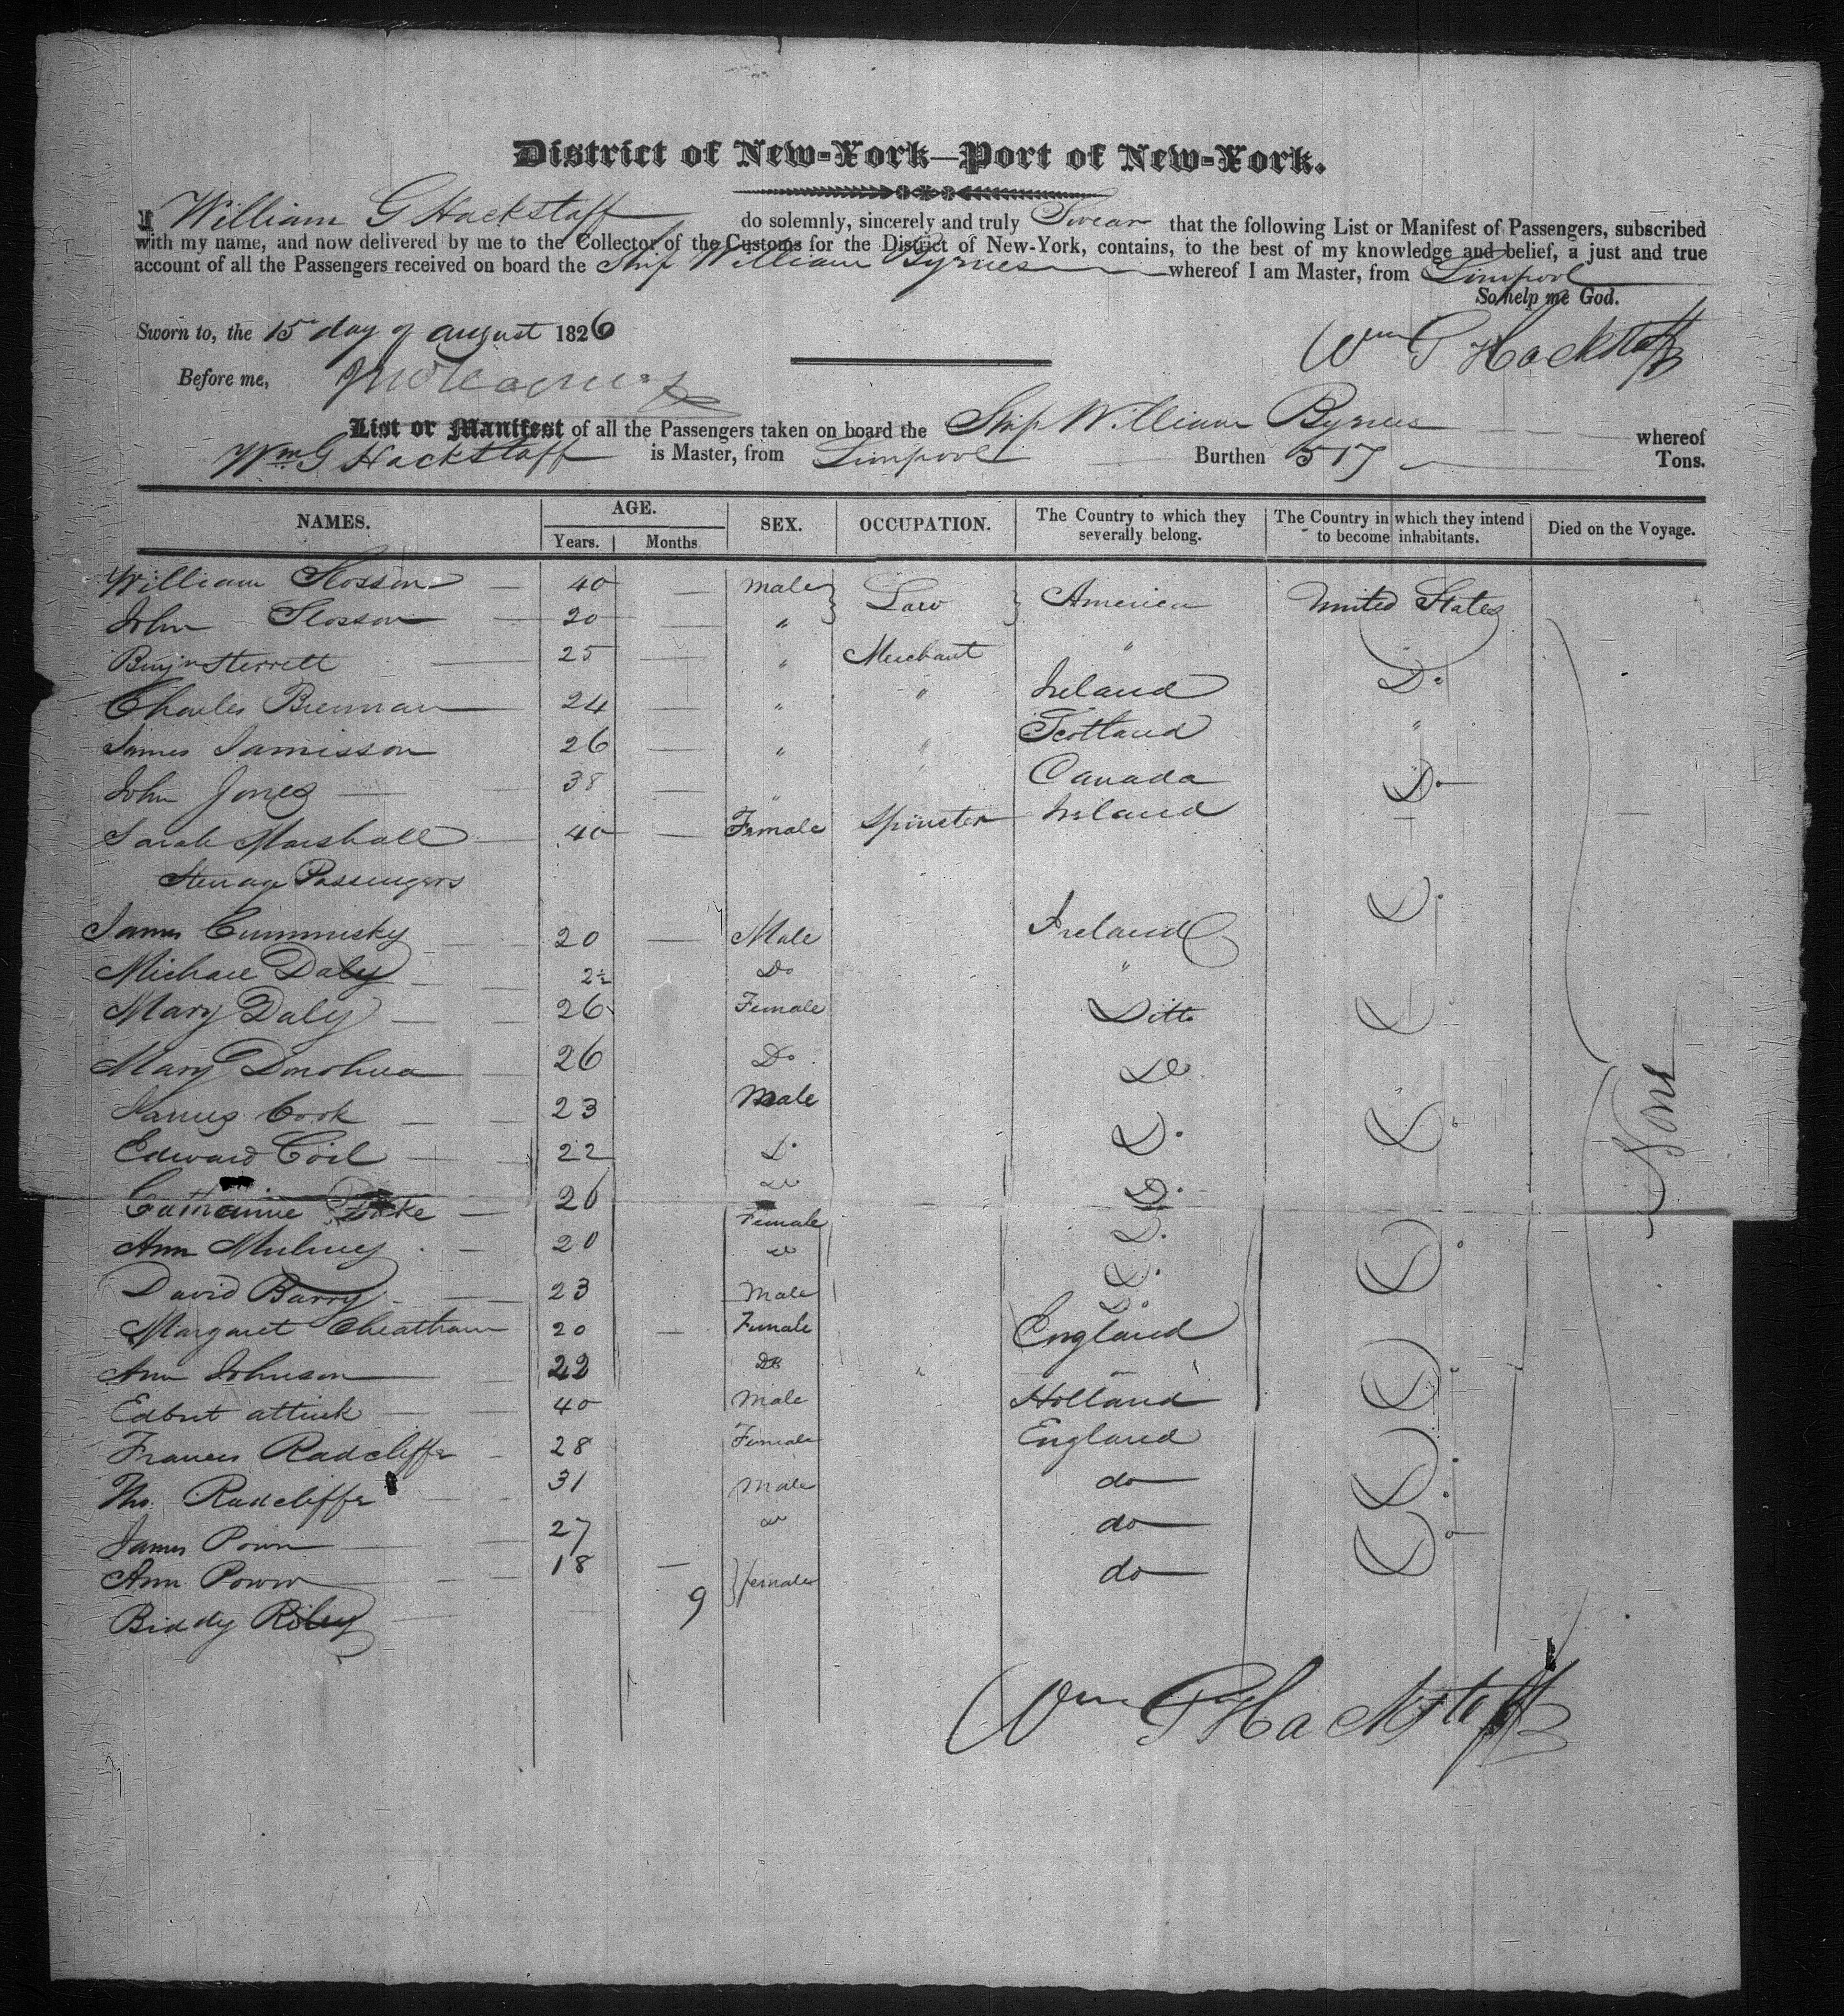 District of New-York—Port of New-York.
I William G Hackstaff do solemnly, sincerely and truly Swear that the following List or Manifest of Passengers, subscribed
with my name, and now delivered by me to the Collector of the Customs for the District of New-York, contains, to the best of my knowledge and belief, a just and true
account of all the Passengers received on board the Ship William Byrnes whereof I am Master, from Liverpool
So help me God.
Sworn to, the 15 day of august 1826
Wm G Hackstaff
Before me,
List or Manifest of all the Passengers taken on board the Ship William Byrnes whereof
Wm G Hackstaff is Master, from Liverpool Burthen 517 Tons.
NAMES. AGE. SEX. OCCUPATION. The Country to which they severally belong. The Country in which they intend to become inhabitants. Died on the Voyage.
Years. Months
William Slosson 40 male Law America United States
John Slosson 20 "
Benjn Sterrett 25 " Merchant "
Charles Brennan 24 " " Ireland Do
James Jamisson 26 " " Scotland "
John Jones 38 " " Canada Do
Sarah Marshall 40 Female Spinster Ireland
Steerage Passengers
James Cummisky 20 Male Ireland Do
Michael Daly 2½ Do "
Mary Daly 26 Female Ditto Do
Mary Donohua 26 Do Do
James Cook 23 Male Do Do
Edward Coil 22 Do Do
Catharine 26 Female Do
Ann Mulvey 20 Do Do
David Barry 23 Male Do
Margaret Cheatham 20 Female England
Ann Johnson 22 Do Do
Edbret 40 Male Holland
Frances Radcliffe 28 Female England Do
Thos. Radcliffe 31 Male do
James 27 do Do
Ann 18 female do
Biddy Riley 9
None
Wm G Hackstaff